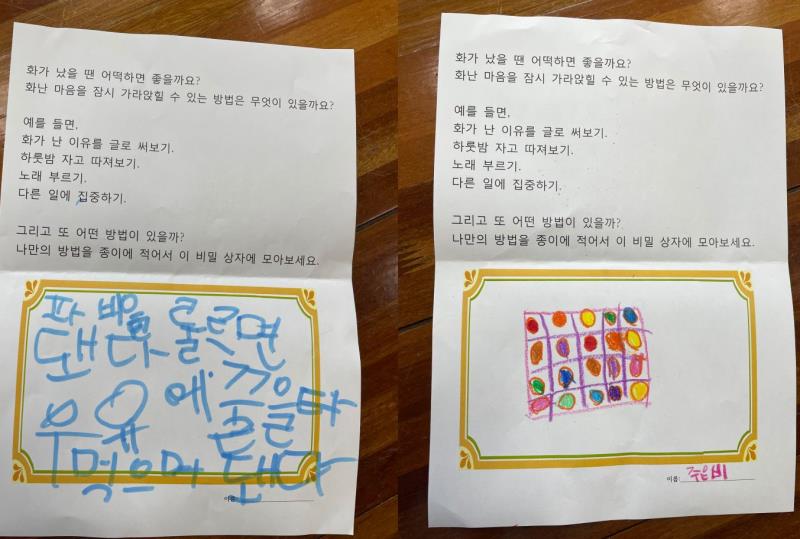 화가 났을 땐 어떡하면 좋을까요?
화난 마음을 잠시 가라앉힐 수 있는 방법은 무엇이 있을까요?
예를 들면,
화가 난 이유를 글로 써보기.
하룻밤 자고 따져보기.
노래 부르기.
다른 일에 집중하기.
그리고 또 어떤 방법이 있을까?
나만의 방법을 종이에 적어서 이 비밀 상자에 모아보세요.
돼다
우유에
먹으며 돼다
이름:
화가 났을 땐 어떡하면 좋을까요?
화난 마음을 잠시 가라앉힐 수 있는 방법은 무엇이 있을까요?
예를 들면,
화가 난 이유를 글로 써보기.
하룻밤 자고 따져보기.
노래 부르기.
다른 일에 집중하기.
그리고 또 어떤 방법이 있을까?
나만의 방법을 종이에 적어서 이 비밀 상자에 모아보세요.
이름: 주은비